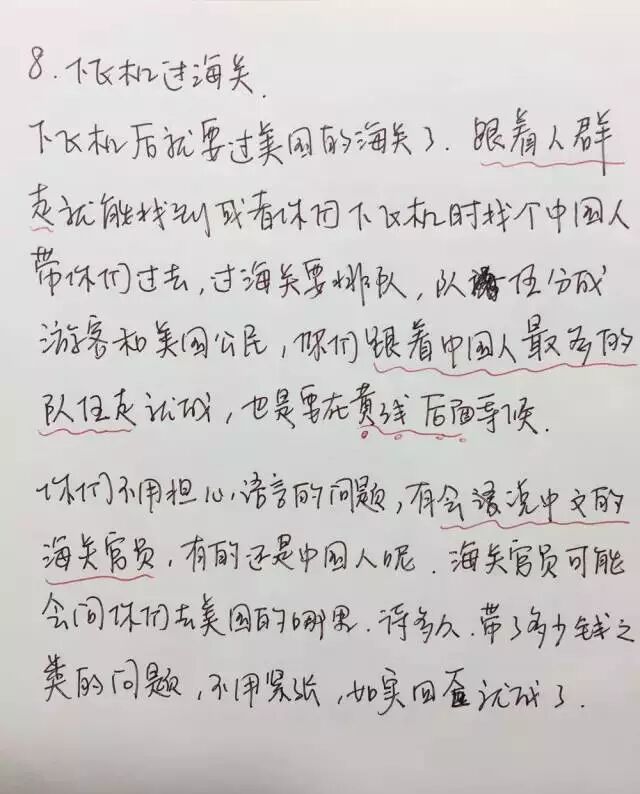 8. 下飞机过海关.
下飞机后就要过美国的海关了. 跟着人群
走就能找到或者你们下飞机时找个中国人
带你们过去, 过海关要排队, 队伍分成
游客和美国公民, 你们跟着中国人最多的
队伍走就成, 也是要在黄线后面等候.
你们不用担心语言的问题, 有会说中文的
海关官员, 有的还是中国人呢. 海关官员可能
会问你们去美国的哪里. 待多久. 带了多少钱之
类的问题, 不用紧张, 如实回答就成了.